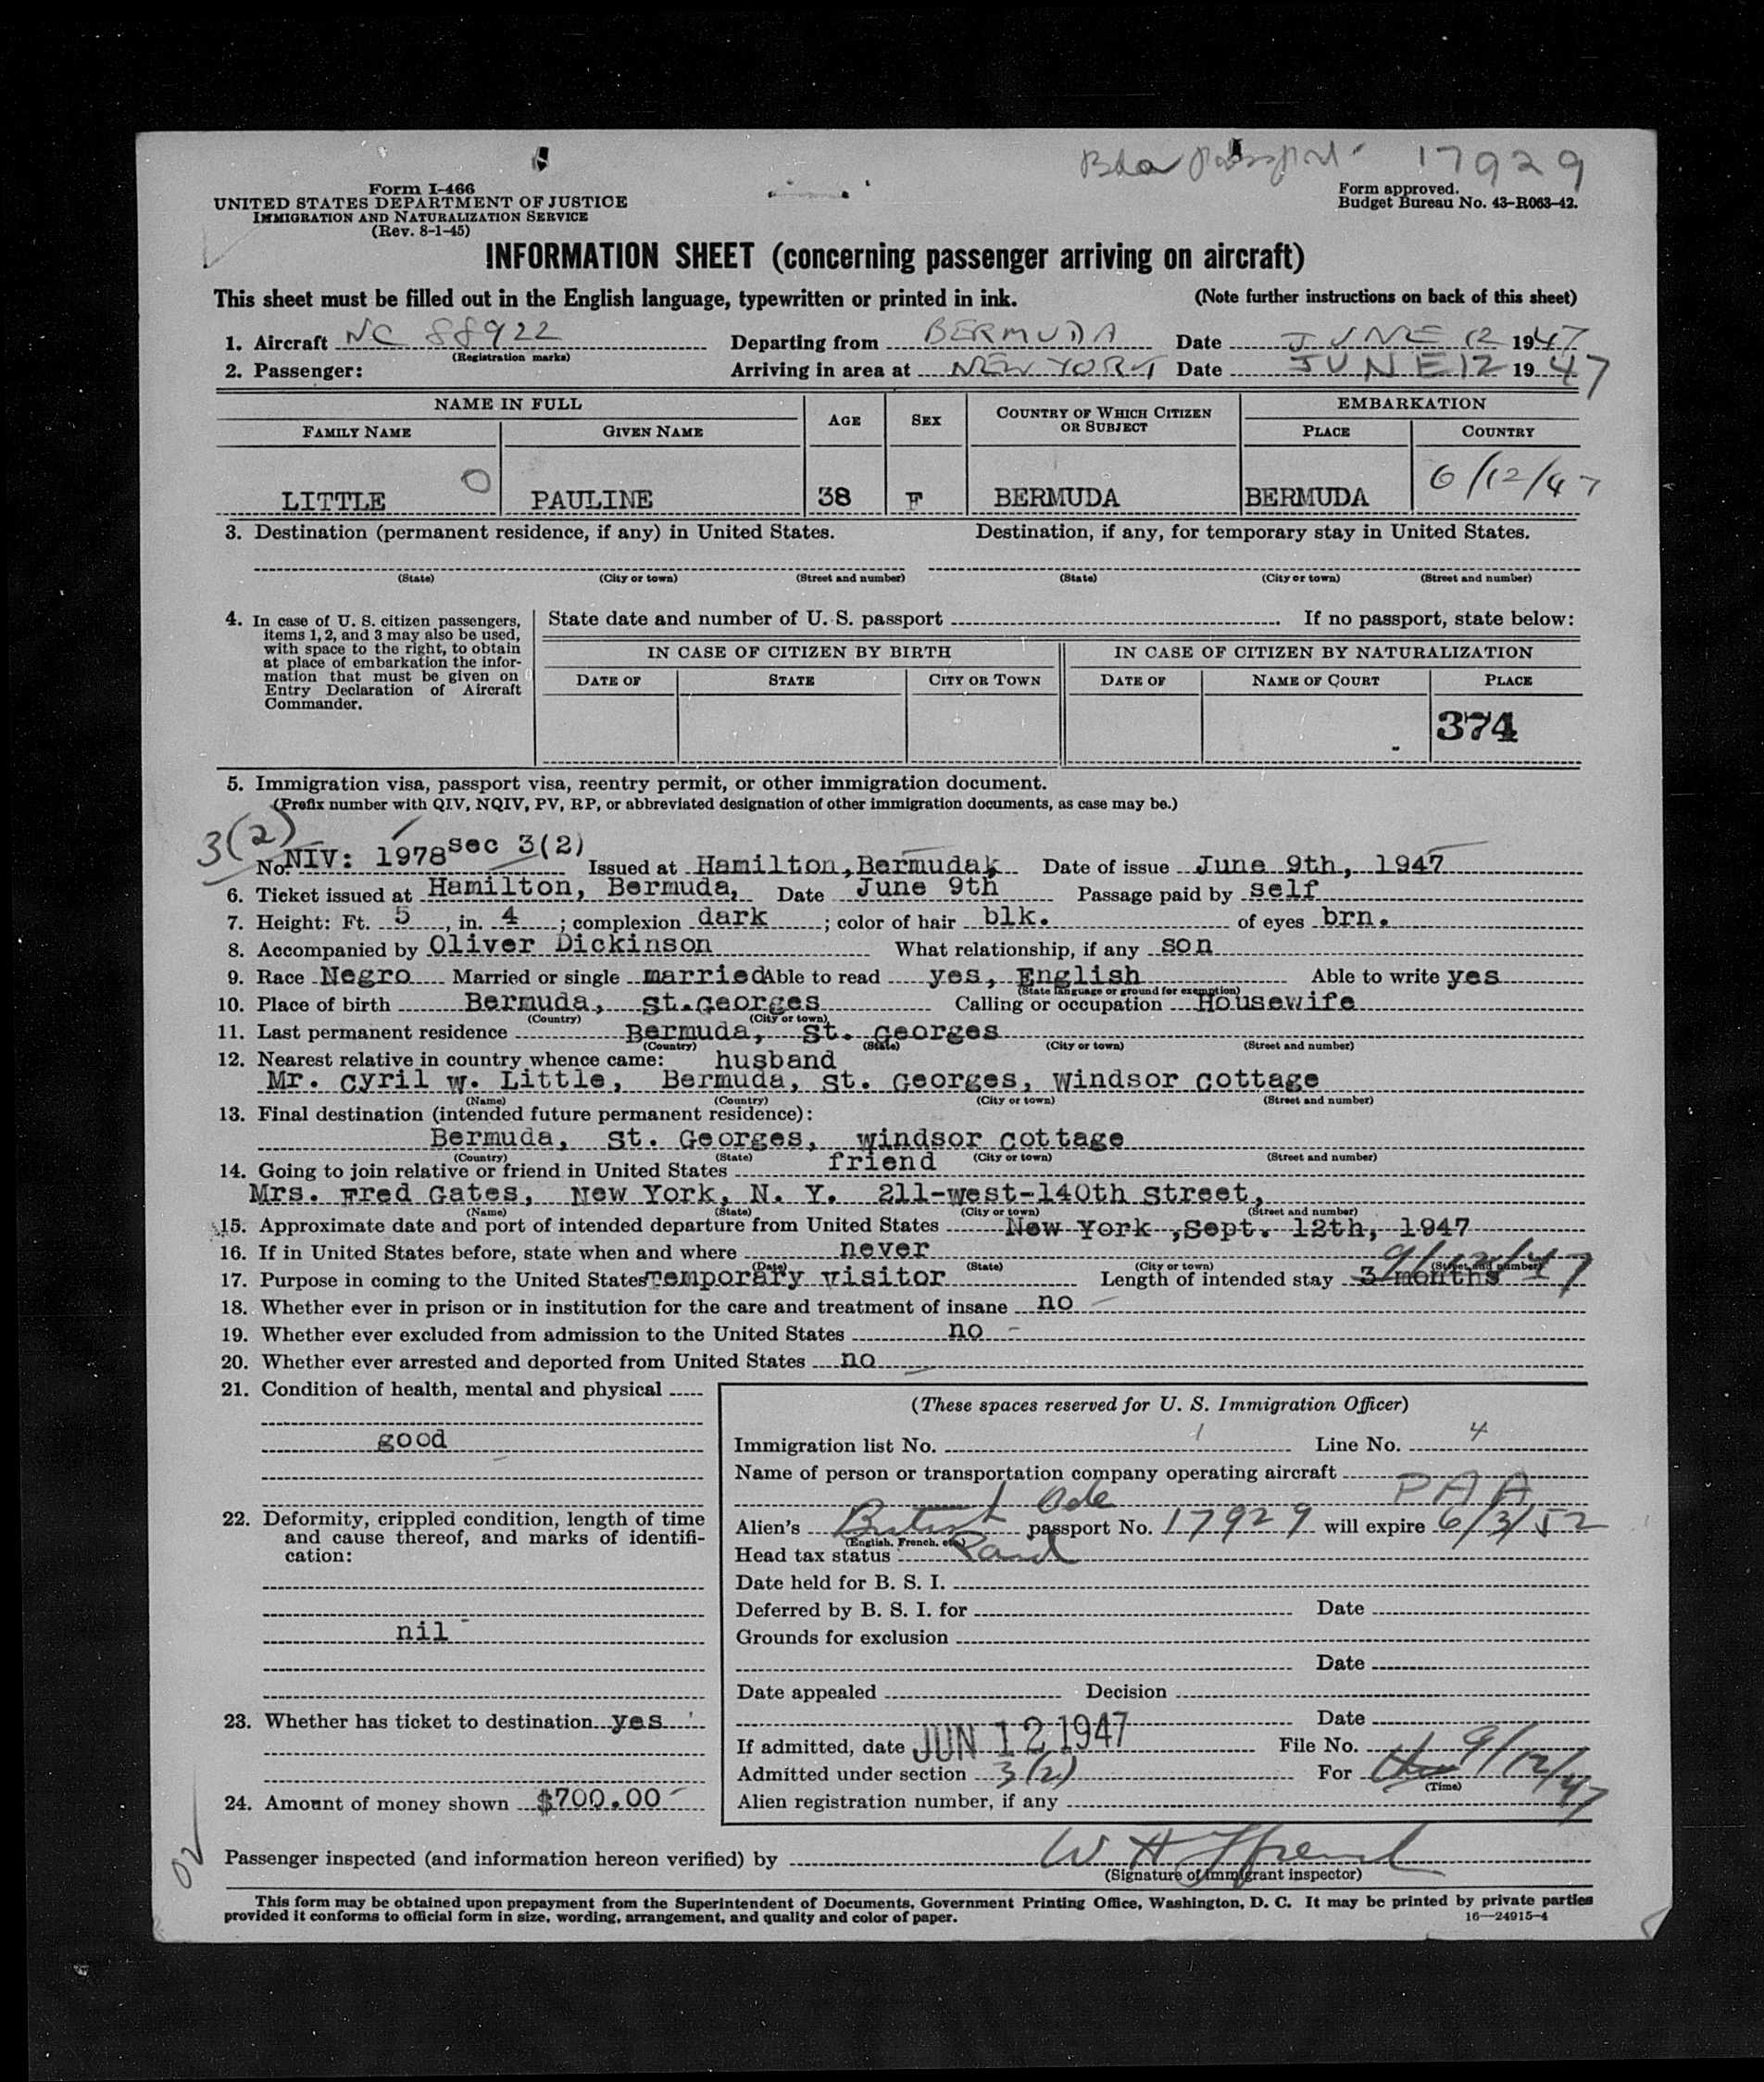 Bda Passport 17929
Form I-466
UNITED STATES DEPARTMENT OF JUSTICE
IMMIGRATION AND NATURALIZATION SERVICE
(Rev. 8-1-45)
Form approved.
Budget Bureau No. 43-R063-42.
INFORMATION SHEET (concerning passenger arriving on aircraft)
This sheet must be filled out in the English language, typewritten or printed in ink. (Note further instructions on back of this sheet)
1. Aircraft NC 88922 Departing from BERMUDA Date JUNE 12 1947
(Registration marks)
2. Passenger: Arriving in area at NEW YORK Date JUNE 12 1947
NAME IN FULL AGE SEX COUNTRY OF WHICH CITIZEN OR SUBJECT EMBARKATION
FAMILY NAME GIVEN NAME PLACE COUNTRY
LITTLE O PAULINE 38 F BERMUDA BERMUDA 6/12/47
3. Destination (permanent residence, if any) in United States. Destination, if any, for temporary stay in United States.
(State) (City or town) (Street and number) (State) (City or town) (Street and number)
4. In case of U. S. citizen passengers, items 1, 2, and 3 may also be used, with space to the right, to obtain at place of embarkation the information that must be given on Entry Declaration of Aircraft Commander.
State date and number of U. S. passport If no passport, state below:
IN CASE OF CITIZEN BY BIRTH IN CASE OF CITIZEN BY NATURALIZATION
DATE OF STATE CITY OR TOWN DATE OF NAME OF COURT PLACE
374
5. Immigration visa, passport visa, reentry permit, or other immigration document.
(Prefix number with QIV, NQIV, PV, RP, or abbreviated designation of other immigration documents, as case may be.)
3(2)
No. NIV: 1978 sec 3(2) Issued at Hamilton, Bermuda, Date of issue June 9th, 1947
6. Ticket issued at Hamilton, Bermuda, Date June 9th Passage paid by self
7. Height: Ft. 5, in. 4; complexion dark; color of hair blk. of eyes brn.
8. Accompanied by Oliver Dickinson What relationship, if any son
9. Race Negro Married or single married Able to read yes, English Able to write yes
(State language or ground for exemption)
10. Place of birth Bermuda, St.Georges Calling or occupation Housewife
(Country) (City or town)
11. Last permanent residence Bermuda, St. Georges
(Country) (State) (City or town) (Street and number)
12. Nearest relative in country whence came: husband
Mr. Cyril W. Little, Bermuda, St. Georges, Windsor Cottage
(Name) (Country) (City or town) (Street and number)
13. Final destination (intended future permanent residence):
Bermuda, St. Georges, Windsor Cottage
(Country) (State) (City or town) (Street and number)
14. Going to join relative or friend in United States friend
Mrs. Fred Gates, New York, N. Y. 211-West-140th Street,
(Name) (State) (City or town) (Street and number)
15. Approximate date and port of intended departure from United States New York ,Sept. 12th, 1947
16. If in United States before, state when and where never
(Date) (State) (City or town) (Street and number)
9/12/47
17. Purpose in coming to the United States Temporary Visitor Length of intended stay 3 months
18. Whether ever in prison or in institution for the care and treatment of insane no
19. Whether ever excluded from admission to the United States no
20. Whether ever arrested and deported from United States no
21. Condition of health, mental and physical
good
22. Deformity, crippled condition, length of time and cause thereof, and marks of identification:
nil
23. Whether has ticket to destination yes
24. Amount of money shown $700.00
(These spaces reserved for U. S. Immigration Officer)
Immigration list No. 1 Line No. 4
Name of person or transportation company operating aircraft
PAA
Alien's British passport No. 17929 will expire 6/3/52
(English, French, etc.)
Head tax status Paid
Date held for B. S. I.
Deferred by B. S. I. for Date
Grounds for exclusion
Date
Date appealed Decision
Date
If admitted, date JUN 12 1947 File No.
Admitted under section 3(2) For 9/12/47
(Time)
Alien registration number, if any
02
Passenger inspected (and information hereon verified) by W H
(Signature of immigrant inspector)
This form may be obtained upon prepayment from the Superintendent of Documents, Government Printing Office, Washington, D. C. It may be printed by private parties
provided it conforms to official form in size, wording, arrangement, and quality and color of paper. 16—24915-4